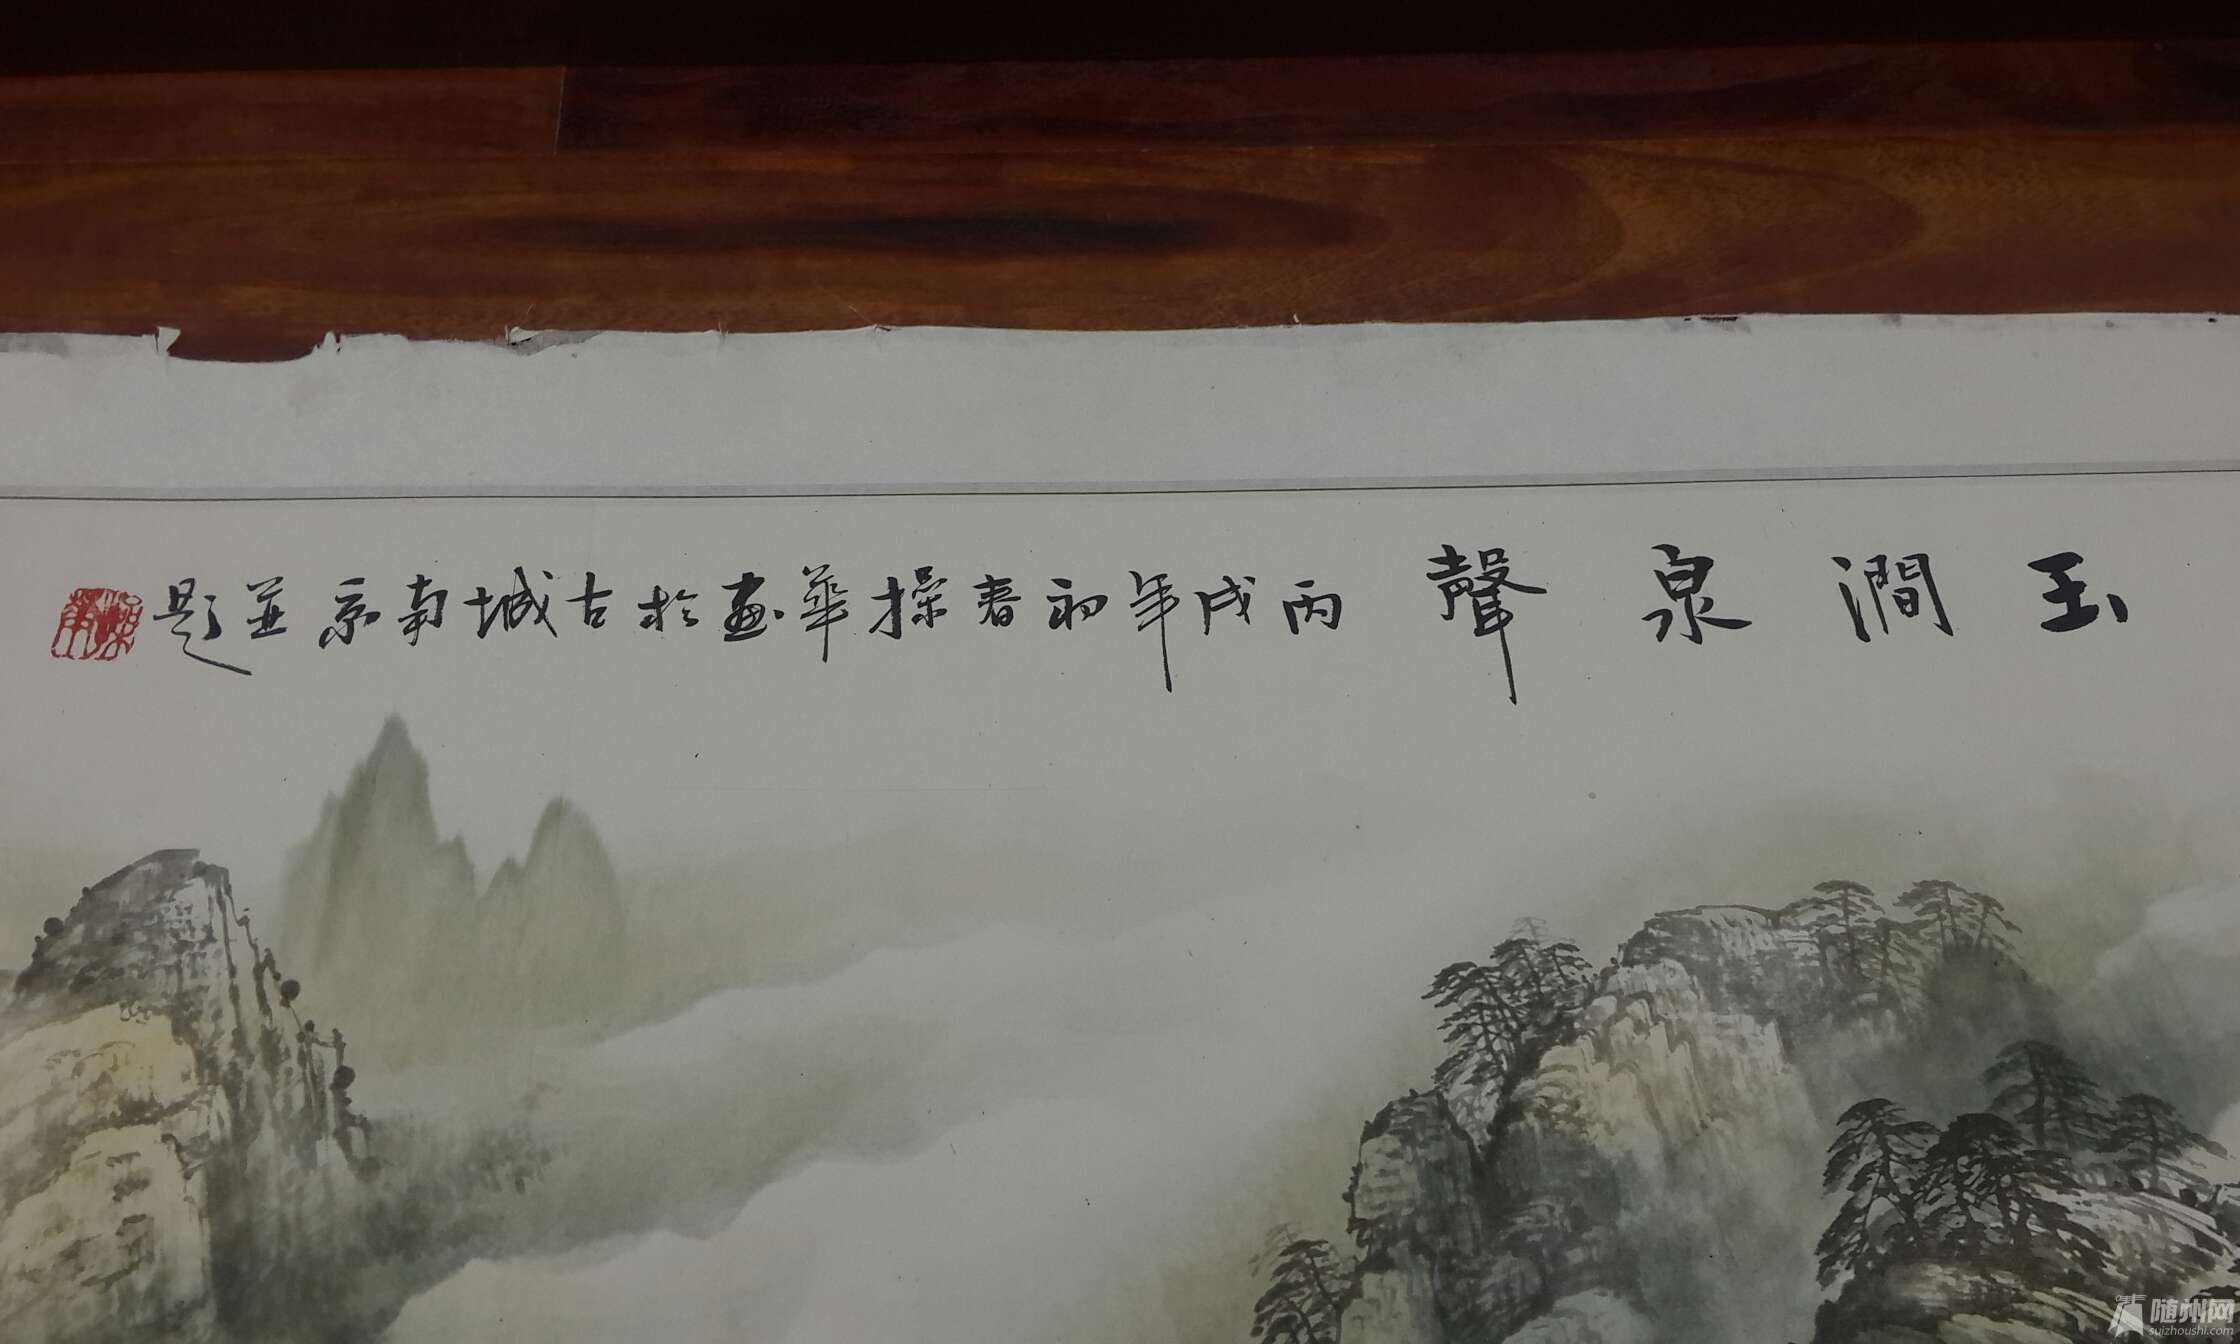 玉澗泉聲 丙戌年初春操華畫於古城南京並題
随州网
suizhoushi.com